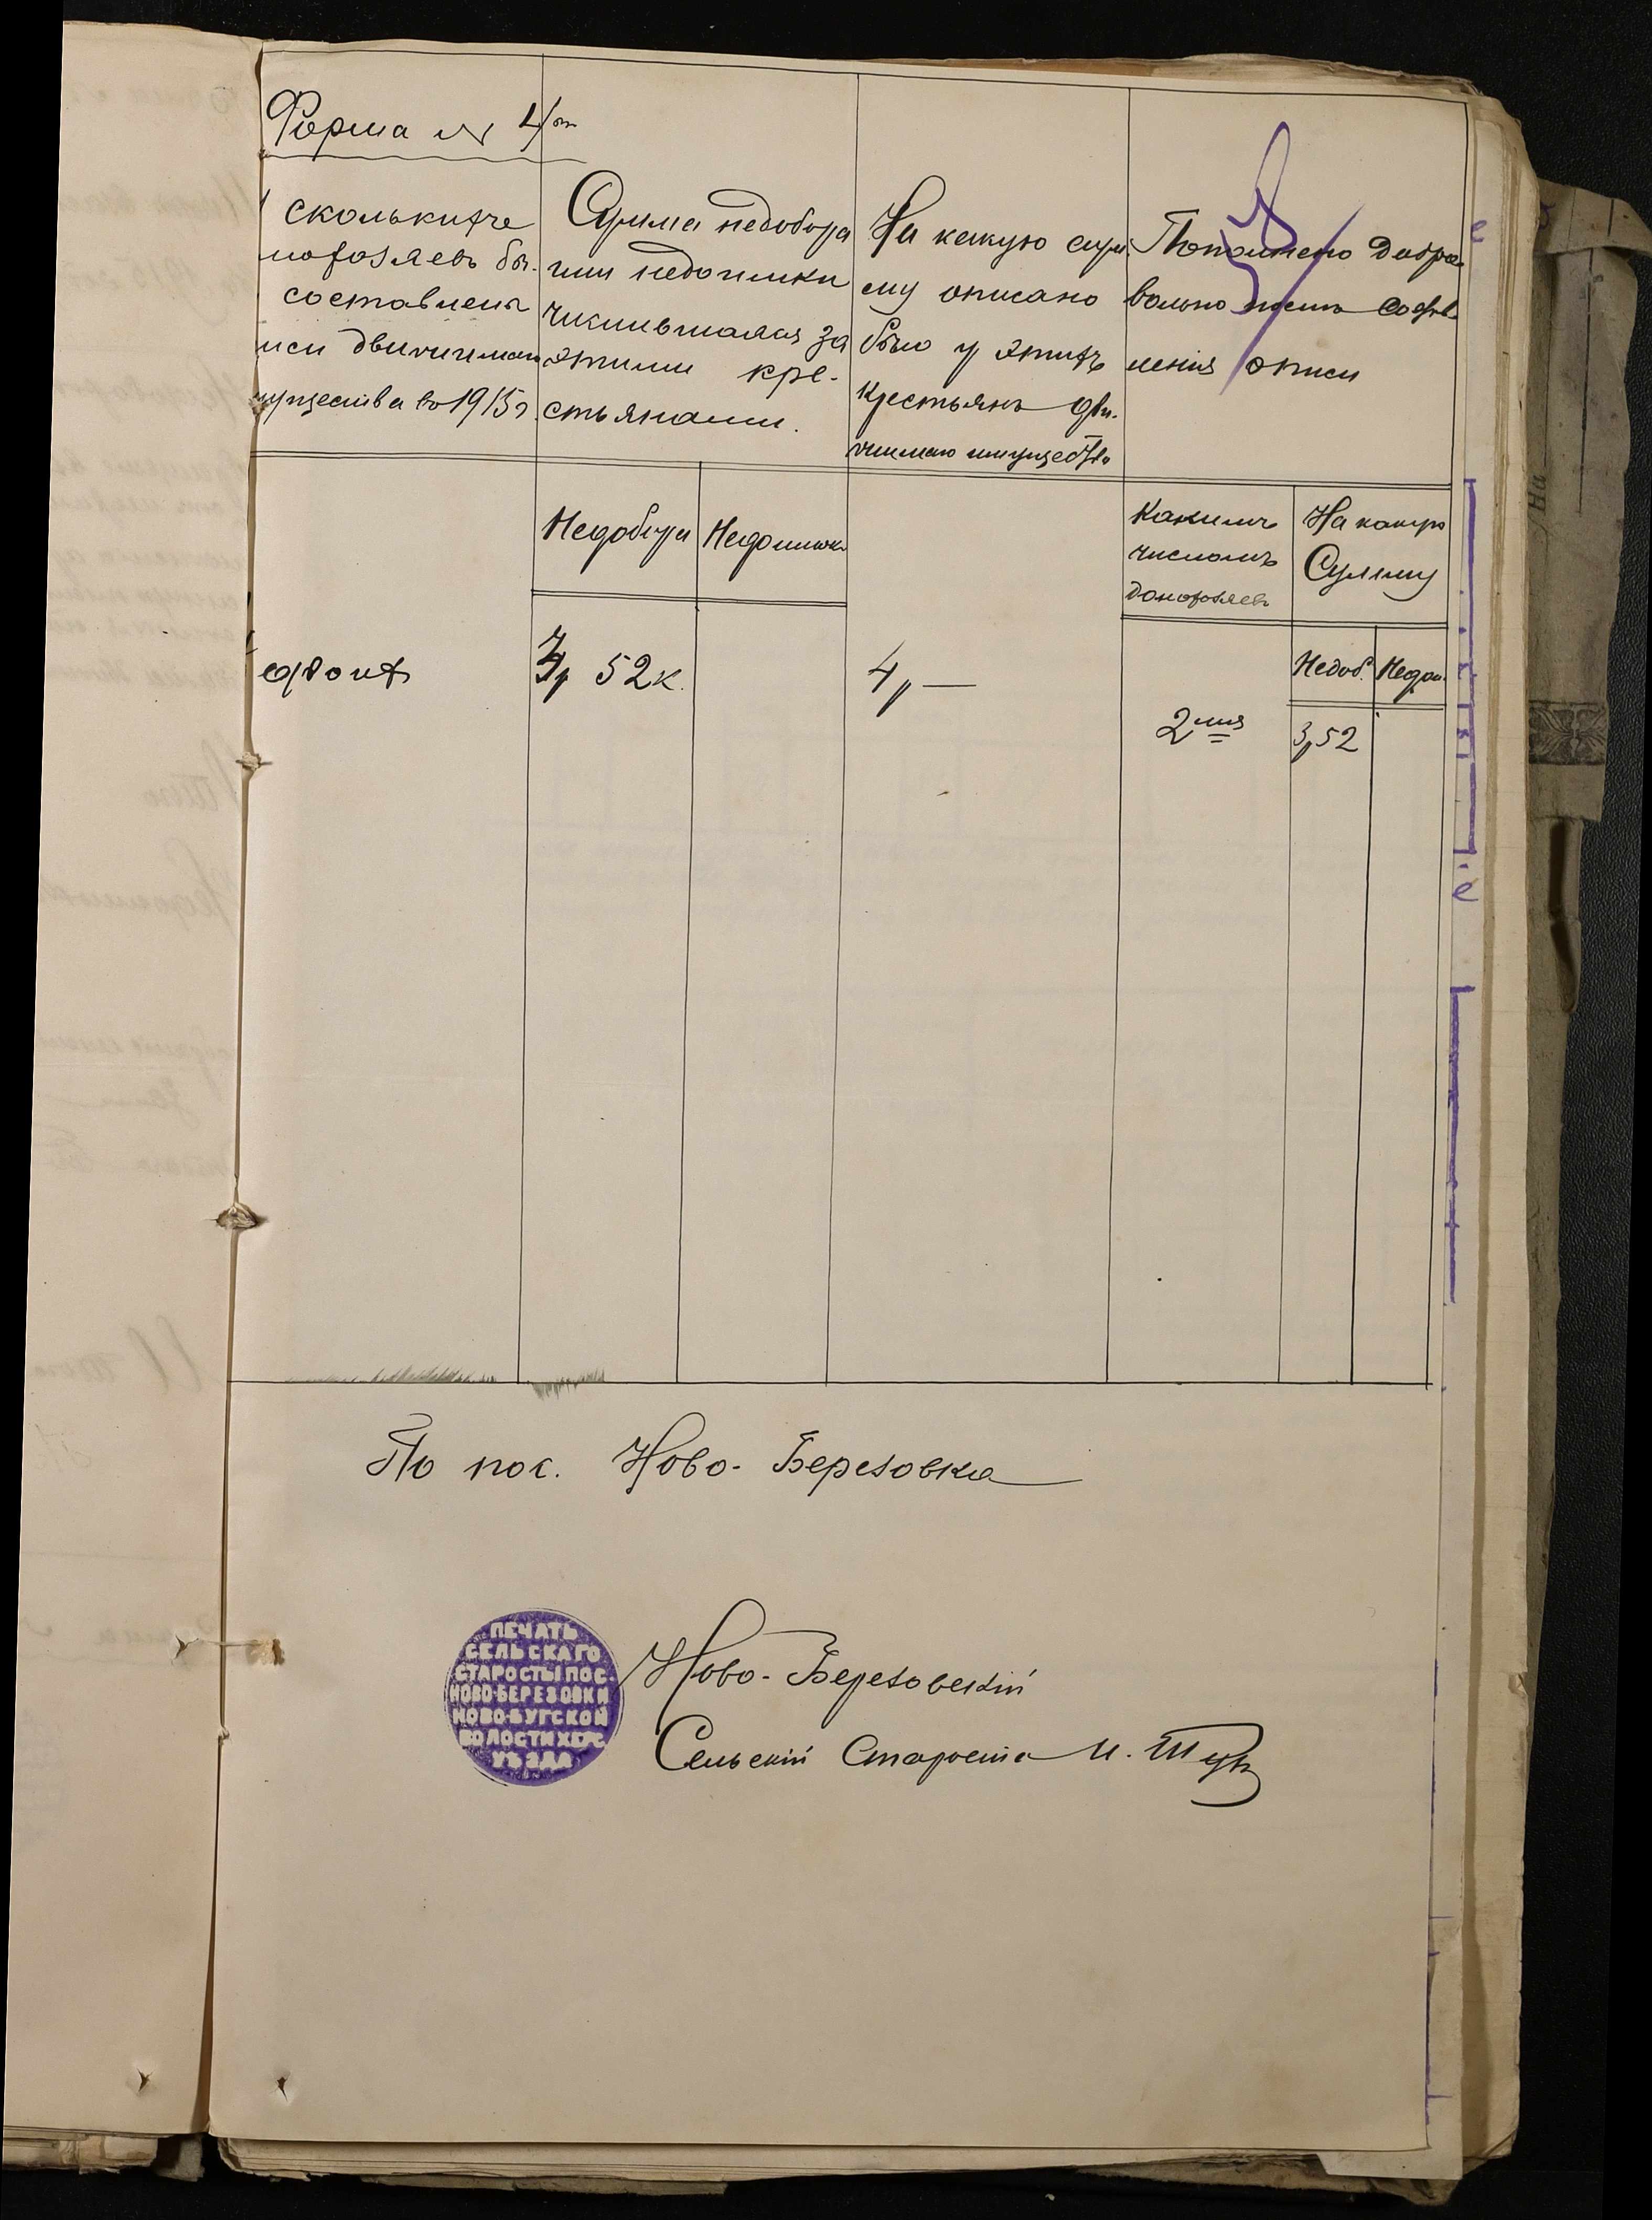 Форма № 4/
сколькихъ
домохозяевъ бы.
составлена
писи движимаго
имущества въ 1915 г.
Сумма недобора
или недоимки
числившаяся за
этими кре-
стьянами.
На какую сум.
му описано
было у этихъ
крестьянъ дви.
жимаго имущества
Пополнено добро
вольно послѣ составле
ленія описи
Недобора
Недоимки
Какимъ
числомъ
домохозяевъ
На какую
Сумму
Недоб.
Недои.
одного
52 к.
4 р —
2 мя
3 р 52
По пос. Ново-Березовка
ПЕЧАТЬ
СЕЛЬСКАГО
СТАРОСТЫ ПОС.
НОВО-БЕРЕЗОВКИ
НОВО-БУГСКОЙ
ВОЛОСТИ ХЕРС.
УѢЗДА
Ново-Березовскій
Сельскій Староста И.